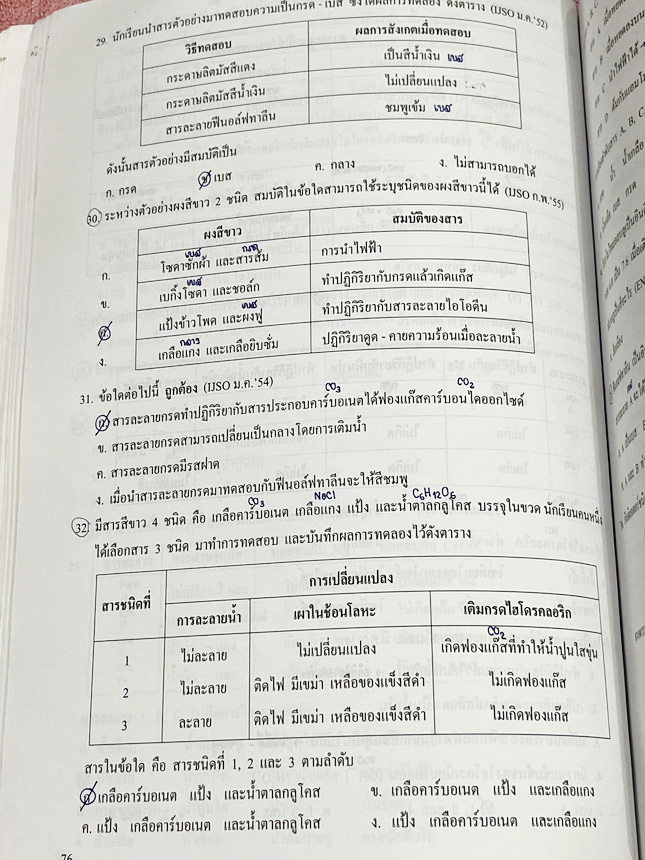 29. นักเรียนนำสารตัวอย่างมาทดสอบความเป็นกรด - เบส ซึ่งได้ผลการทดลอง ดังตาราง (IJSO ม.ค.'52)
วิธีทดสอบ ผลการสังเกตเมื่อทดสอบ
กระดาษลิตมัสสีแดง เป็นสีน้ำเงิน เบส
กระดาษลิตมัสสีน้ำเงิน ไม่เปลี่ยนแปลง
สารละลายฟีนอล์ฟทาลีน ชมพูเข้ม เบส
ดังนั้นสารตัวอย่างมีสมบัติเป็น
ก. กรด ข. เบส ค. กลาง ง. ไม่สามารถบอกได้
30. ระหว่างตัวอย่างผงสีขาว 2 ชนิด สมบัติในข้อใดสามารถใช้ระบุชนิดของผงสีขาวนี้ได้ (IJSO ก.พ.'55)
ผงสีขาว สมบัติของสาร
เบส กรด
ก. โซดาซักผ้า และสารส้ม การนำไฟฟ้า
เบส
ข. เบกิ้งโซดา และชอล์ก ทำปฏิกิริยากับกรดแล้วเกิดแก๊ส
เบส
ค. แป้งข้าวโพด และผงฟู ทำปฏิกิริยากับสารละลายไอโอดีน
กลาง
ง. เกลือแกง และเกลือยิบซั่ม ปฏิกิริยาดูด - คายความร้อนเมื่อละลายน้ำ
31. ข้อใดต่อไปนี้ ถูกต้อง (IJSO ม.ค.'54)
CO3 CO2
ก. สารละลายกรดทำปฏิกิริยากับสารประกอบคาร์บอเนตได้ฟองแก๊สคาร์บอนไดออกไซด์
ข. สารละลายกรดสามารถเปลี่ยนเป็นกลางโดยการเติมน้ำ
ค. สารละลายกรดมีรสฝาด
ง. เมื่อนำสารละลายกรดมาทดสอบกับฟีนอล์ฟทาลีนจะให้สีชมพู
CO3 NaCl C6H12O6
32. มีสารสีขาว 4 ชนิด คือ เกลือคาร์บอเนต เกลือแกง แป้ง และน้ำตาลกลูโคส บรรจุในขวด นักเรียนคนหนึ่ง
ได้เลือกสาร 3 ชนิด มาทำการทดสอบ และบันทึกผลการทดลองไว้ดังตาราง
สารชนิดที่ การเปลี่ยนแปลง
การละลายน้ำ เผาในช้อนโลหะ เติมกรดไฮโดรคลอริก
CO2
1 ไม่ละลาย ไม่เปลี่ยนแปลง เกิดฟองแก๊สที่ทำให้น้ำปูนใสขุ่น
2 ไม่ละลาย ติดไฟ มีเขม่า เหลือของแข็งสีดำ ไม่เกิดฟองแก๊ส
3 ละลาย ติดไฟ มีเขม่า เหลือของแข็งสีดำ ไม่เกิดฟองแก๊ส
สารในข้อใด คือ สารชนิดที่ 1, 2 และ 3 ตามลำดับ
ก. เกลือคาร์บอเนต แป้ง และน้ำตาลกลูโคส ข. เกลือคาร์บอเนต แป้ง และเกลือแกง
ค. แป้ง เกลือคาร์บอเนต และน้ำตาลกลูโคส ง. แป้ง เกลือคาร์บอเนต และเกลือแกง
76